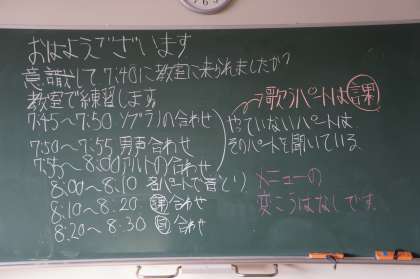 おはようございます
意識して7:40に教室に来られましたか?
教室で練習します。
7:45~7:50 ソプラノの合わせ
7:50~7:55 男声合わせ
7:55~8:00 アルトの合わせ
8:00~8:10 各パートで音とり
8:10~8:20 課 合わせ
8:20~8:30 自 合わせ
歌うパートは課
やっていないパートは
そのパートを聞いている。
メニューの
変こうはなしです。